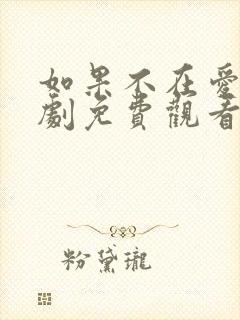 如果不在愛
劇免費觀看
粉黛瓏